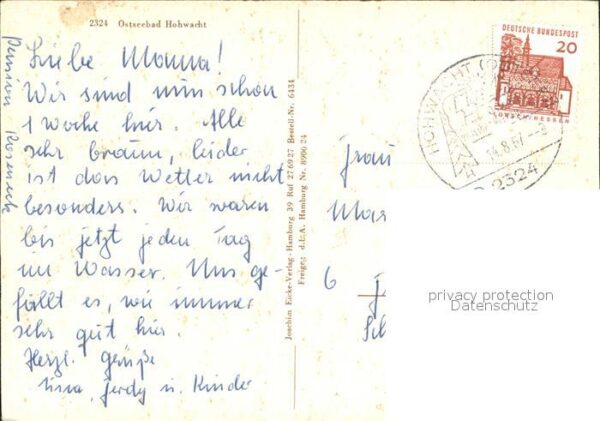 2324 Ostseebad Hohwacht
Pension Roseneck
Liebe Mama!
Wir sind nun schon
1 Woche hier. Alle
sehr braun, leider
ist das Wetter nicht
besonders. Wir waren
bis jetzt jeden Tag
im Wasser. Uns ge-
fällt es, wie immer
sehr gut hier.
Herzl. Grüße
Ferdy u. Kinder
Joachim Eicke-Verlag · Hamburg 39 Ruf 27 69 27 Bestell-Nr. 6434
Freigeg. d.L.A. Hamburg Nr. 8906 24
DEUTSCHE BUNDESPOST
20
LORSCH/HESSEN
HOHWACHT
2324
Frau
Mar
6
privacy protection
Datenschutz